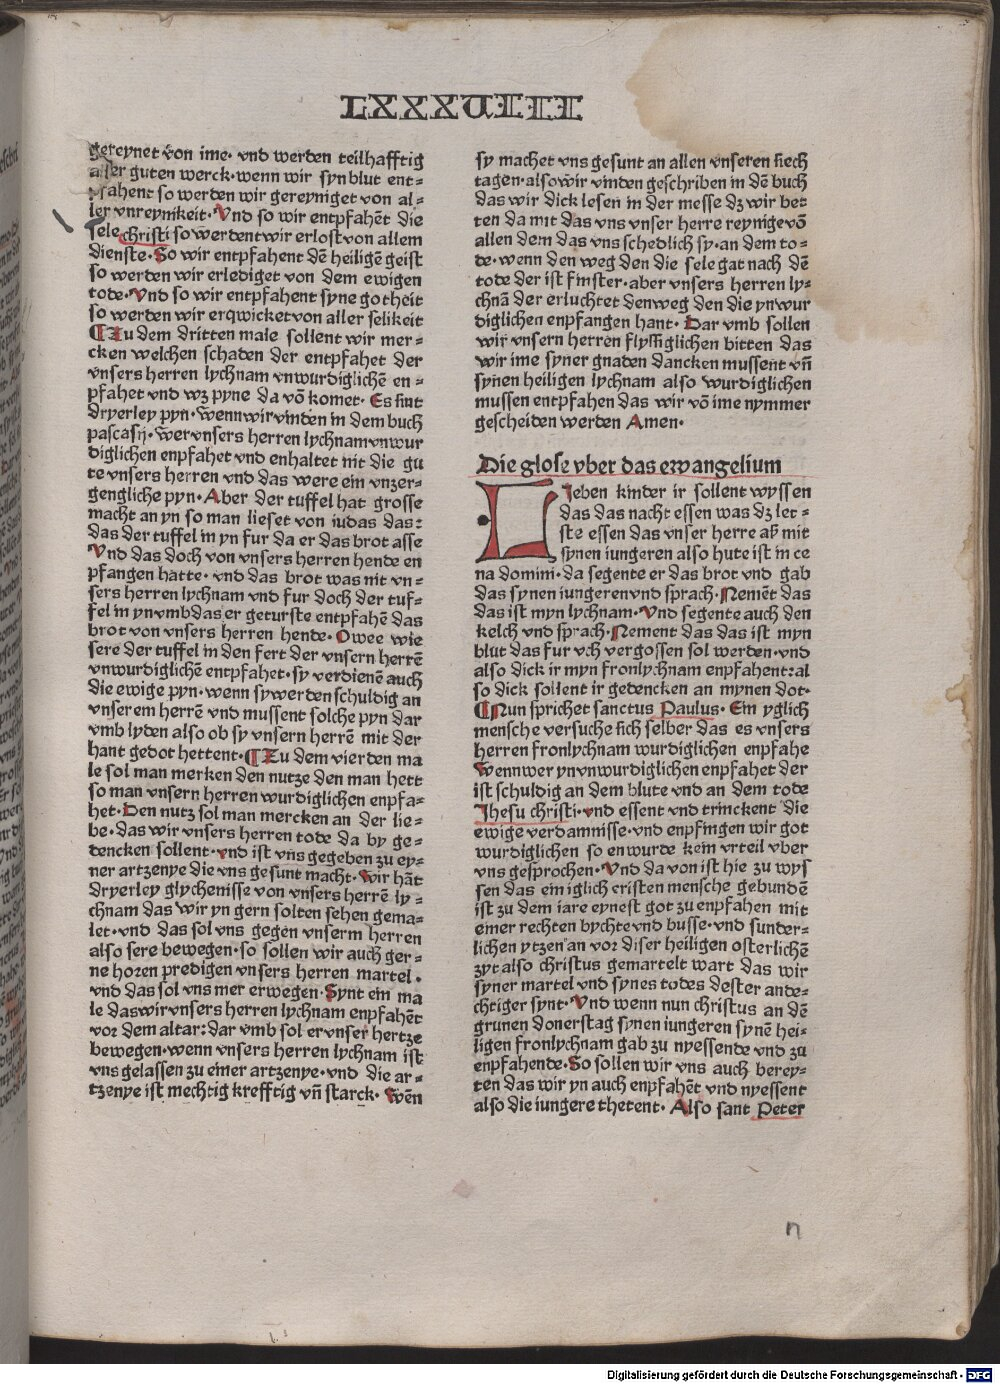 LXXXXVIIII
gereynet von ime· vnd werden teilhafftig
aller guten werck· wenn wir syn blut ent⸗
pfahent so werden wir gereyniget von al⸗
ler vnreynikeit· Vnd so wir entpfahēt die
sele christi so werdent wir erlost von allem
dienste· So wir entpfahent dē heiligē geist
so werden wir erlediget von dem ewigen
tode· Vnd so wir entpfahent syne gotheit
so werden wir erqwicket von aller selikeit
¶ Zu dem dritten male sollent wir mer⸗
cken welchen schaden der entpfahet der
vnsers herren lychnam vnwurdiglichē en⸗
pfahet vnd wz pyne da vō komet· Es sint
dryerley pyn· Wenn wir vinden in dem buch
pascasij· wer vnsers herren lychnam vnwur
diglichen enpfahet vnd enhaltet nit die gu
te vnsers herren vnd das were ein vnzer⸗
gengliche pyn· Aber der tuffel hat grosse
macht an yn so man lieset von iudas das:
das der tuffel in yn fur da er das brot asse
Vnd das doch von vnsers herren hende en
pfangen hatte· vnd das brot was nit vn⸗
sers herren lychnam vnd fur doch der tuf⸗
fel in yn vmb das er geturste entpfahē das
brot von vnsers herren hende· Owee wie
sere der tuffel in den fert der vnsern herrē
vnwurdiglichē entpfahet· sy verdienē auch
die ewige pyn· wenn sy werden schuldig an
vnserem herrē vnd mussent solche pyn dar
vmb lyden also ob sy vnsern herrē mit der
hant gedot hettent· ¶ Zu dem vierden ma
le sol man merken den nutze den man hett
so man vnsern herren wurdiglichen enpfa⸗
het· Den nutz sol man mercken an der lie⸗
be· das wir vnsers herren tode da by ge⸗
dencken sollent· vnd ist vns gegeben zu ey⸗
ner artzenye die vns gesunt macht· Wir hāt
dryerley glychenisse von vnsers herrē ly⸗
chnam das wir yn gern solten sehen gema⸗
let· vnd das sol vns gegen vnserm herren
also sere bewegen· so sollen wir auch ger⸗
ne horen predigen vnsers herren martel·
vnd das sol vns mer erwegen· Synt ein ma
le das wir vnsers herren lychnam enpfahēt
vor dem altar: dar vmb sol er vnser hertze
bewegen· wenn vnsers herren lychnam ist
vns gelassen zu einer artzenye· vnd die ar⸗
tzenye ist mechtig krefftig vn̄ starck· Wēn
sy machet vns gesunt an allen vnseren siech
tagen· also wir vinden geschriben in dē buch
das wir dick lesen in der messe dz wir bet
ten da mit das vns vnser herre reynige vō
allen dem das vns schedlich sy· an dem to⸗
de· wenn den weg den die sele gat nach dē
tode der ist finster· aber vnsers herren ly⸗
chnā der erluchtet den weg den die yn wur
diglichen enpfangen hant· Dar vmb sollen
wir vnsern herren flyssiglichen bitten das
wir ime syner gnaden dancken mussent vn̄
synen heiligen lychnam also wurdiglichen
mussen entpfahen das wir vō ime nymmer
gescheiden werden Amen·
Die glose vber das ewangelium
Lieben kinder ir sollent wyssen
das das nacht essen was dz let⸗
ste essen das vnser herre aß mit
synen iungeren also hute ist in ce
na domini· da segente er das brot vnd gab
das synen iungeren vnd sprach· Nemēt das
das ist myn lychnam· Vnd segente auch den
kelch vnd sprach· Nement das das ist myn
blut das fur vch vergossen sol werden· vnd
also dick ir myn fronlychnam enpfahent: al
so dick sollent ir gedencken an mynen dot·
¶ Nun sprichet sanctus Paulus· Ein yglich
mensche versuche sich selber das es vnsers
herren fronlychnam wurdiglichen enpfahe
Wenn wer yn vnwurdiglichen enpfahet der
ist schuldig an dem blute vnd an dem tode
Jhesu christi· vnd essent vnd trinckent die
ewige verdamnisse· vnd enpfingen wir got
wurdiglichen so enwurde kein vrteil vber
vns gesprochen· Vnd da von ist hie zu wys
sen das ein iglich cristen mensche gebundē
ist zu dem iare eynest got zu enpfahen mit
einer rechten bychte vnd busse· vnd sunder⸗
lichen ytzen an vor diser heiligen osterlichē
zyt also christus gemartelt wart das wir
syner martel vnd synes todes dester ande⸗
chtiger synt· Vnd wenn nun christus an dē
grunen donerstag synen iungeren synē hei⸗
ligen fronlychnam gab zu nyessende vnd zu
enpfahende· So sollen wir vns auch berey⸗
ten das wir yn auch enpfahēt vnd nyessent
also die iungere thetent· Also sant Peter
n
Digitalisierung gefördert durch die Deutsche Forschungsgemeinschaft - DFG